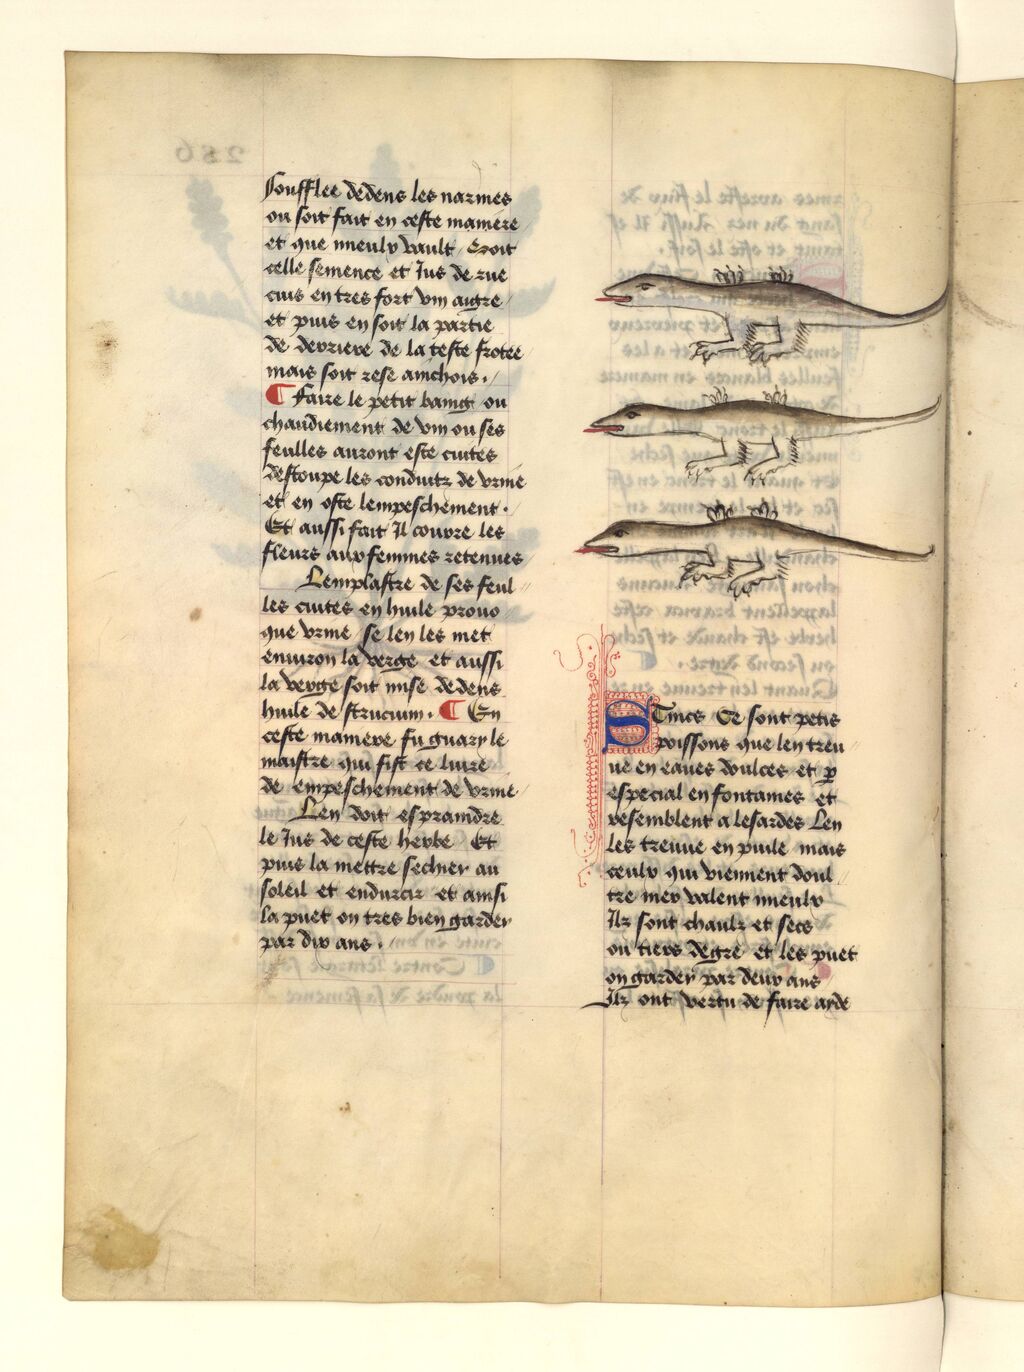 soufflee dedens les narines
ou soit fait en ceste maniere
et que mieulx vault / Soit
celle semence et Jus de rue
cuis en tres fort vin aigre /
et puis en soit la partie
de derriere de la teste frotee
mais soit rese ainchois . /
¶ Faire le petit baing ou
chaudiement de vin ou ses
feulles auront este cuites
destoupe les conduitz de vrine
et en oste lempeschement .
Et aussi fait Il couvre les
fleurs aux femmes retenues /
Lemplastre de ses feul //
les cuites en huile provo
que vrine se len les met
environ la verge et aussi
la verge soit mise dedens
huile de strucium . ¶ En
ceste maniere fu guary le
maistre qui fist ce livre
de empeschement de vrine
Len doit espraindre
le Jus de ceste herbe Et
puis la mettre sechier au
soleil et endurcir et ainsi
la puet on tres bien garder
par dix ans . /
STincs Ce sont petis
poissons que len treu
ve en eaves doulces et p
especial en fontaines et
resemblent a lesardes Len
les treuve en puile mais
ceulx qui viennent doul /
tre mer valent mieulx
Ilz sont chaulz et secs
ou tiers degre et les puet
on garder par deux ans
Ilz ont vertu de faire ayde
286